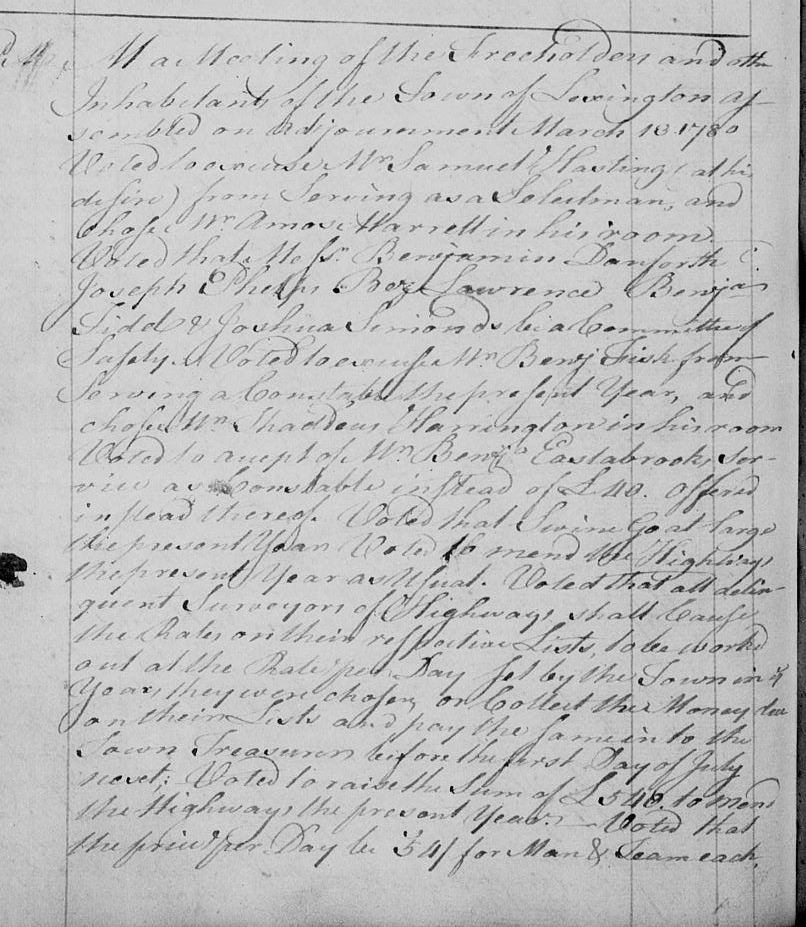 At a Meeting of the Freeholders and other
Inhabitants of the Town of Lexington as-
sembled on Adjournment March 13 1780
Voted to excuse Mr Samuel Hasting (at his
desire) from Serving as a Selectman, and
chose Mr Amos Marrett in his room.
Voted that Messrs Benjamin Danforth
Joseph Phelps Benj Lawrence Benja
Tidd & Joshua Simonds be a Committee of
Safety. Voted to excuse Mr Benj Fisk from
Serving a Constable the present Year, and
chose Mr Thaddeus Harrington in his room
Voted to accept of Mr Benja Eastabrook ser-
vice as Constable instead of £40. offered
instead thereof. Voted that Swine Go at large
the present Year Voted to mend the Highways
the present Year as Usual. Voted that all delin-
quent Surveyors of Highways shall Cause
the Rates on their respective Lists, to be worked
out at the Rate per Day set by the Town in ye
Year they were chosen, or Collect the Money due
on their Lists and pay the same in to the
Town Treasurer before the first Day of July
next; Voted to raise the Sum of £540. to mend
the Highways the present Year — Voted that
the price per Day be 54/ for Man & Team each.